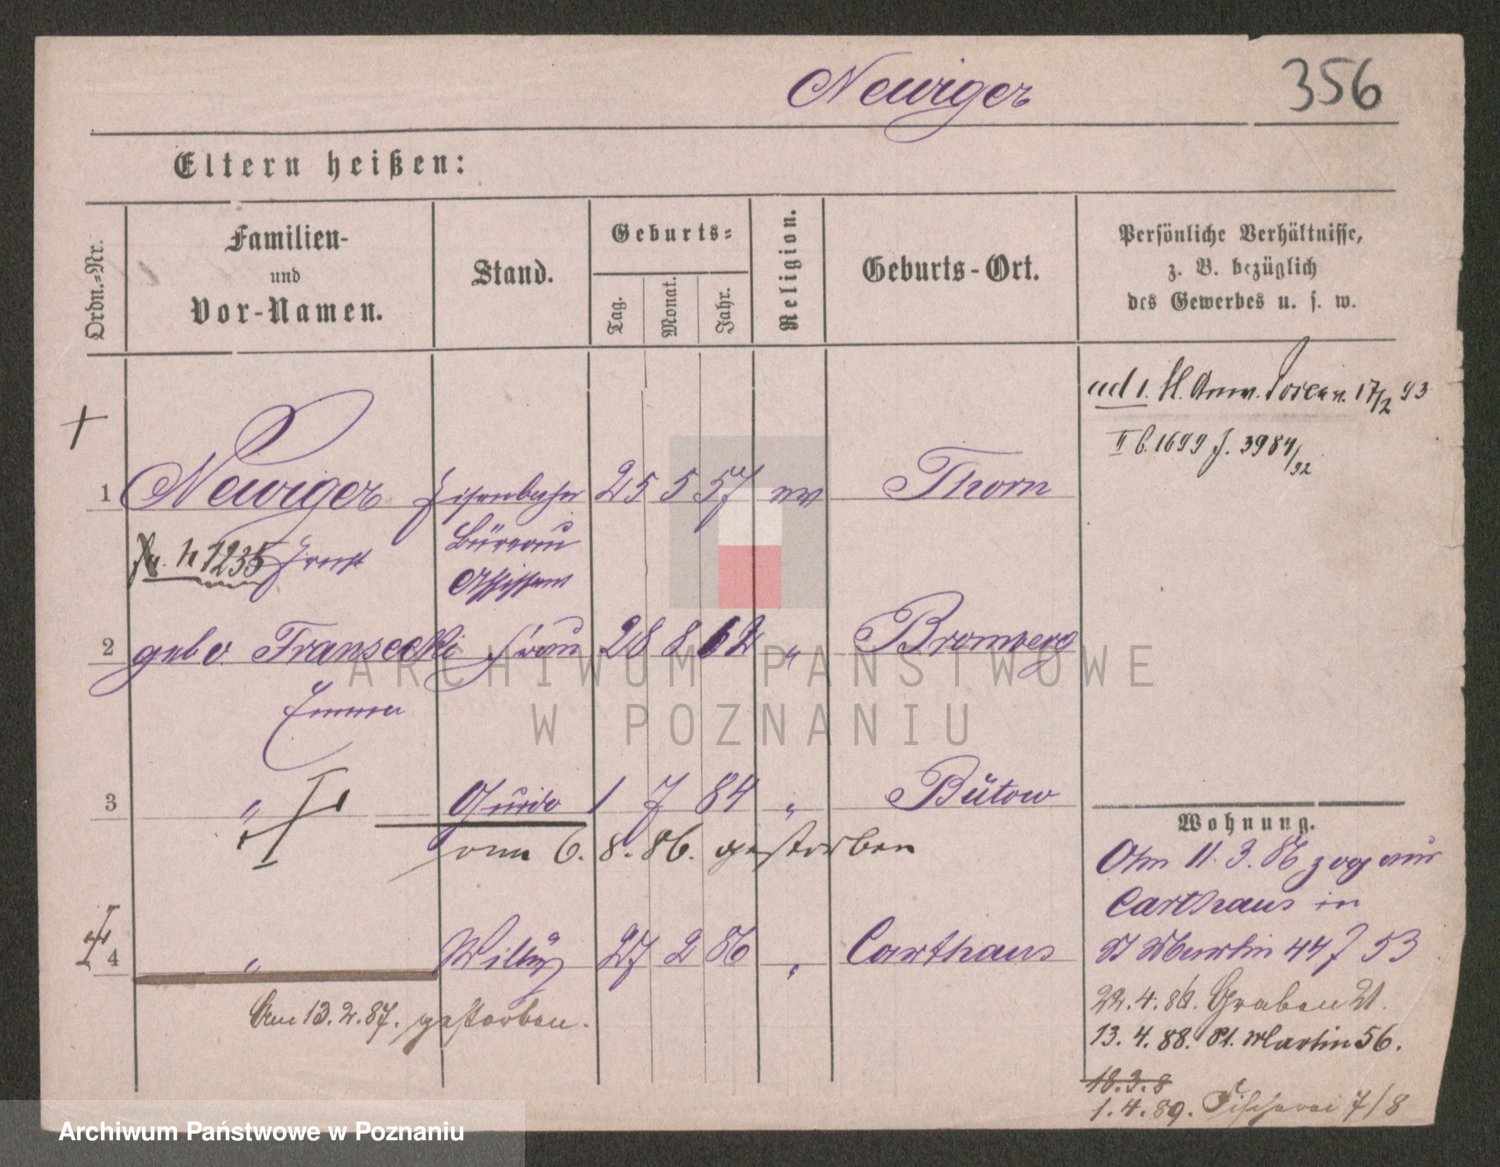 Newiger
356
Eltern heißen:
Ordn.-Nr.
Familien-
und
Vor-Namen.
Stand.
Geburts-
Tag.
Monat.
Jahr.
Religion.
Geburts-Ort.
Persönliche Verhältnisse,
z. B. bezüglich
des Gewerbes u. s. w.
ad 1. 17/2 93
II b. 1699 J. 3984/92
1 Newiger Eisenbahn 25 5 57 ev Thorn
1235 Ernst Büreau
Assistent
2 geb v. Fransecki Frau 28 8 62 " Bromberg
Emma
3 " Guido 1 7 84 " Bütow
am 6. 8. 86. gestorben
4 " Willy 27 2 86 " Carthaus
Am 13.2.87. gestorben.
Wohnung.
Am 11. 3. 86 zog aus
Carthaus in
St Martin 44 J 53
22.4.86. Graben 21.
13. 4. 88. St. Martin 56.
18.3.8
1. 4. 89. Fischerei 7/8
ARCHIWUM PAŃSTWOWE
W POZNANIU
Archiwum Państwowe w Poznaniu